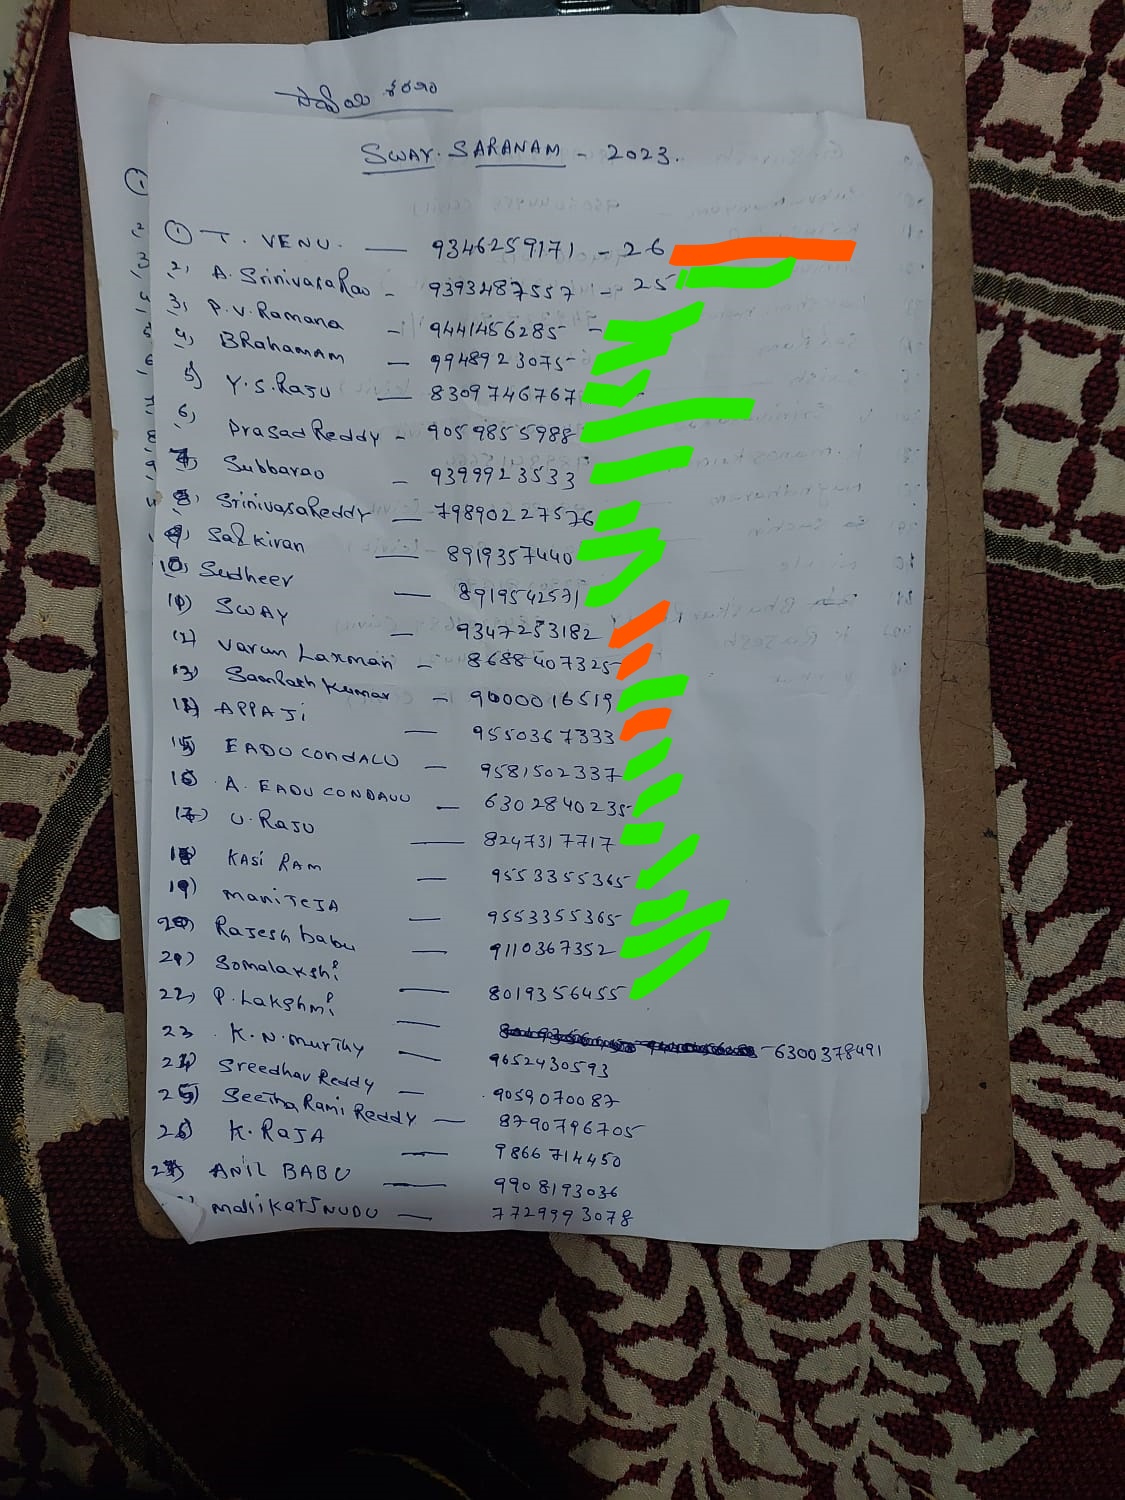 SWAY. SARANAM - 2023.
① T. VENU. — 9346259171 - 26
2, A. Srinivasa Rao - 9393487557 - 25
3, P.V. Ramana - 9441456285 -
4, BRahamam — 9948923075
5) Y.S. Raju — 8309746767
6, Prasad Reddy - 9059855988
7, Subbarao - 9399923533
8, Srinivasa Reddy — 7989022757
9, Sai kiran — 8919357440
10, Sudheer — 8919542571
11) SWAY — 9347253182
12) Varun Laxman - 8688407325
13, Sampath Kumar - 9000016519
14) APPAJi — 9550367333
15) EADU CONDALU — 9581502337
16 A. EADU CONDALU — 6302840235
17) U. RAJU — 8247317717
18 KASi RAM — 9553355365
19) maniTeJA — 9553355365
20) Rajesh babu — 9110367352
21) Somalakshi — 8019356455
22, P. Lakshmi — 6300378491
23 K.N. murthy — 9652430593
24) Sreedhar Reddy — 9059070087
25) Seetha Rami Reddy — 8790796705
26) K. RaJA — 9866714450
27) ANIL BABU — 9908193036
mallikarJNUDU — 7729993078